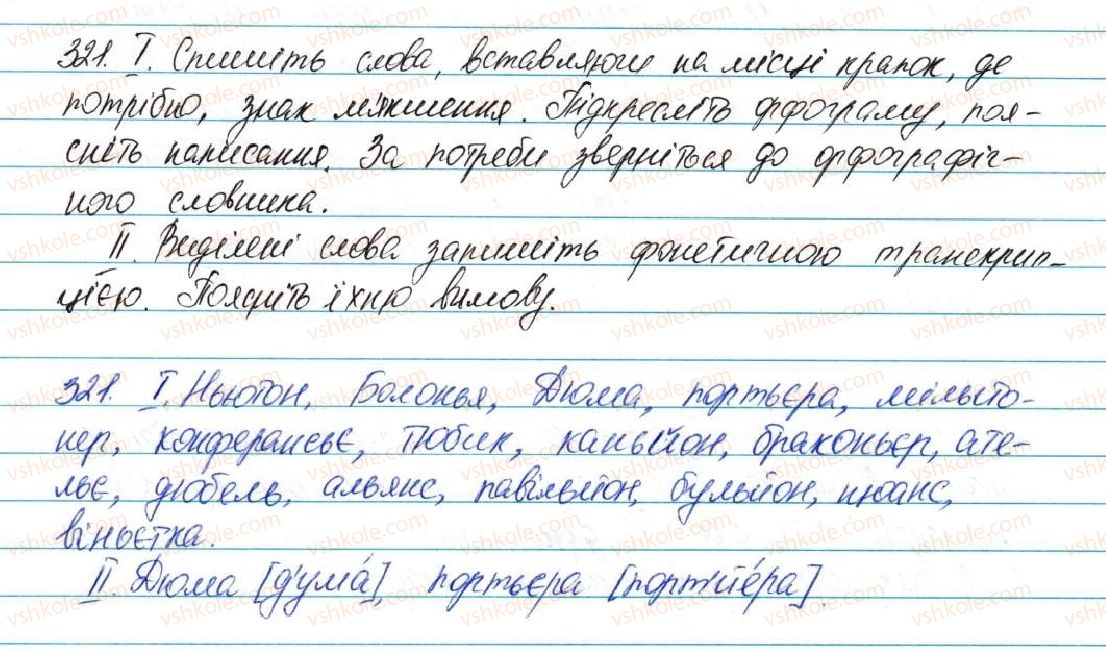 321. I. Спишіть слова, вставляючи на місці крапок, де
потрібно, знак м'якшення. Підкресліть орфограму, поя-
сніть написання. За потреби зверніться до орфографіч-
ного словника.
II. Виділені слова запишіть фонетичною транскрип-
цією. Поясніть їхню вимову.
321. I. Ньютон, Болонья, Дюма, портьєра, мільйо-
нер, конферансьє, тюбик, каньйон, браконьєр, ате-
льє, дюбель, альянс, павільйон, бульйон, нюанс,
віньєтка.
II. Дюма [д'ума́], портьєра [порт'йе́ра].